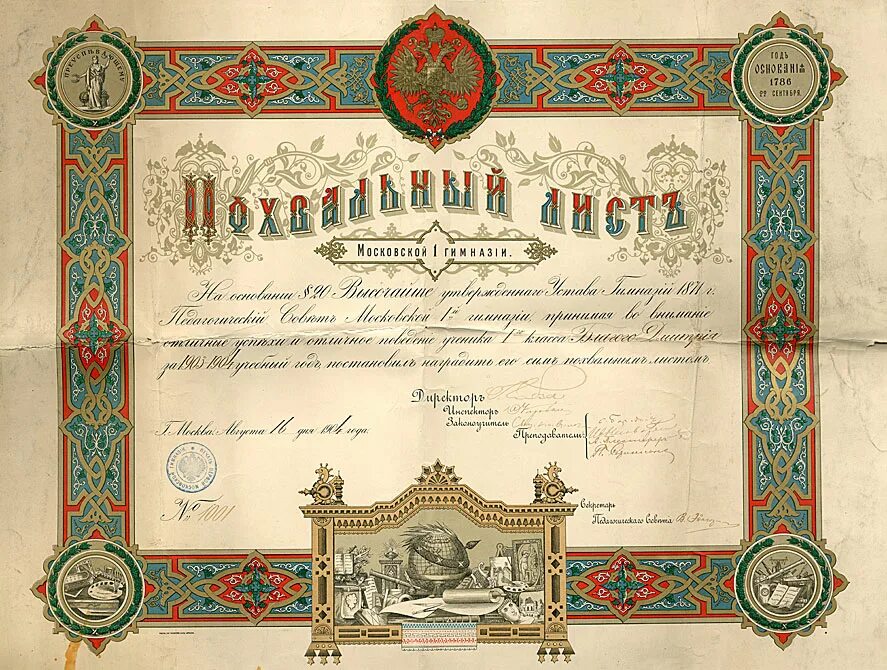 ПРЕУСПѢВАЮЩЕМУ
ГОДЪ
ОСНОВАНІЯ
1786
22 СЕНТЯБРЯ.
ПОХВАЛЬНЫЙ ЛИСТЪ
МОСКОВСКОЙ 1 ГИМНАЗІИ.
На основаніи § 20 Высочайше утвержденнаго Устава Гимназій 1871 г.
Педагогическій Совѣтъ Московской 1ой гимназіи, принимая во вниманіе
отличные успѣхи и отличное поведеніе ученика 1го класса Дмитрія
за 1903/1904 учебный годъ, постановилъ наградить его симъ похвальнымъ листомъ
Директоръ
Инспекторъ
Законоучитель
Преподаватели
Г. Москва. Августа 16 дня 1904 года.
№ 1001
Секретарь
Педагогическаго Совѣта